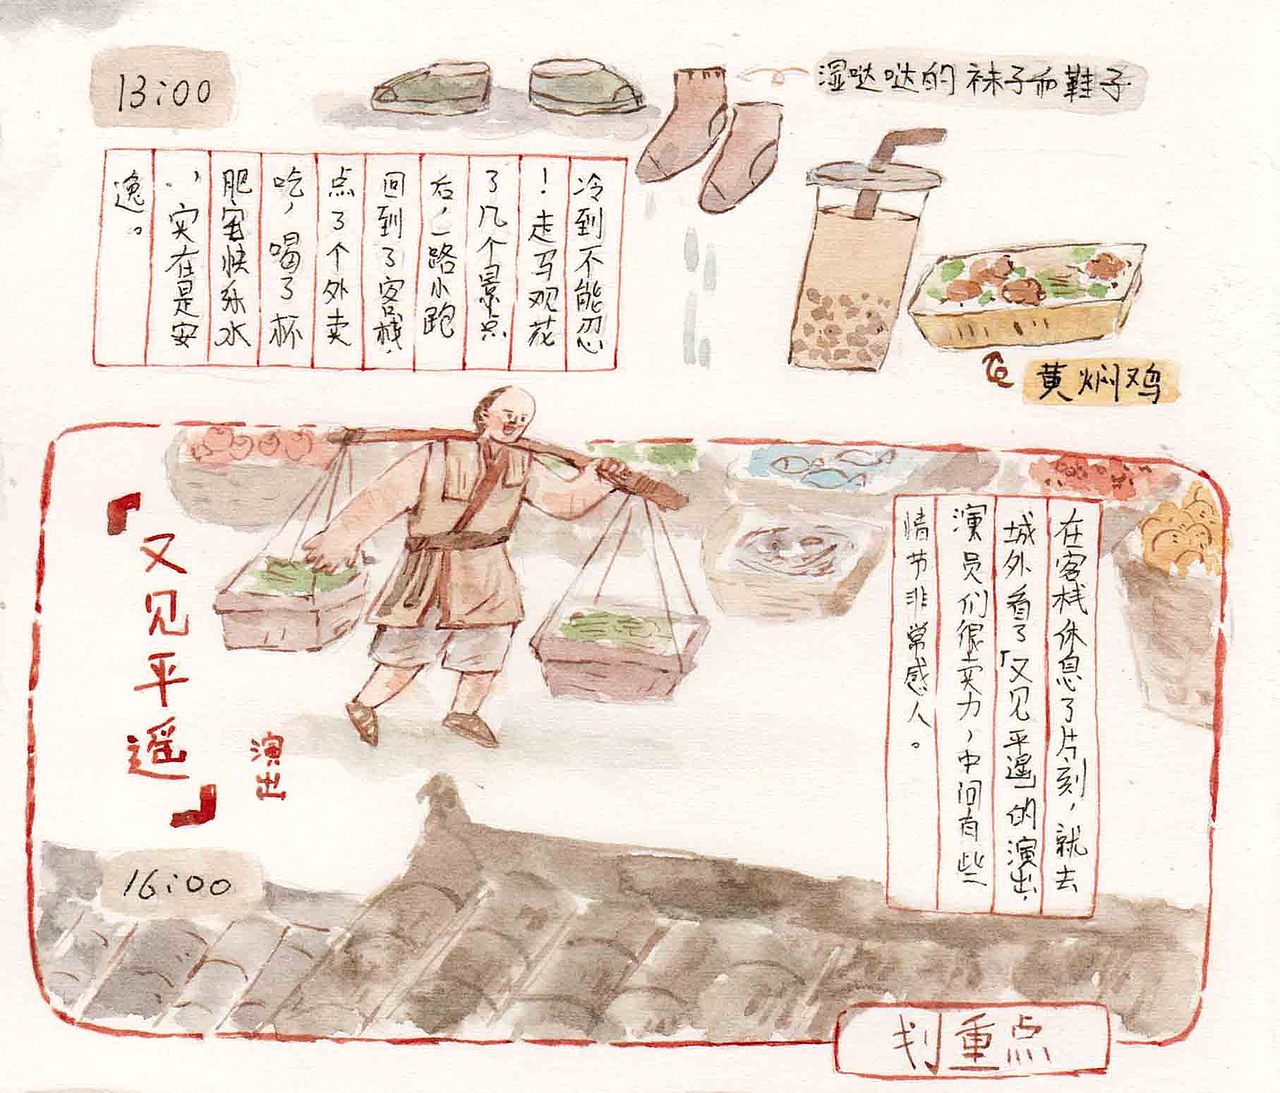 13:00
湿哒哒的袜子和鞋子
冷到不能忍
！走马观花
了几个景点
后，一路小跑
回到了客栈，
点了个外卖
吃，喝了杯
肥宅快乐水
，实在是安
逸。
黄焖鸡
「又见平遥」
演出
在客栈休息了片刻，就去
城外看了「又见平遥」的演出，
演员们很卖力，中间有些
情节非常感人。
16:00
划重点